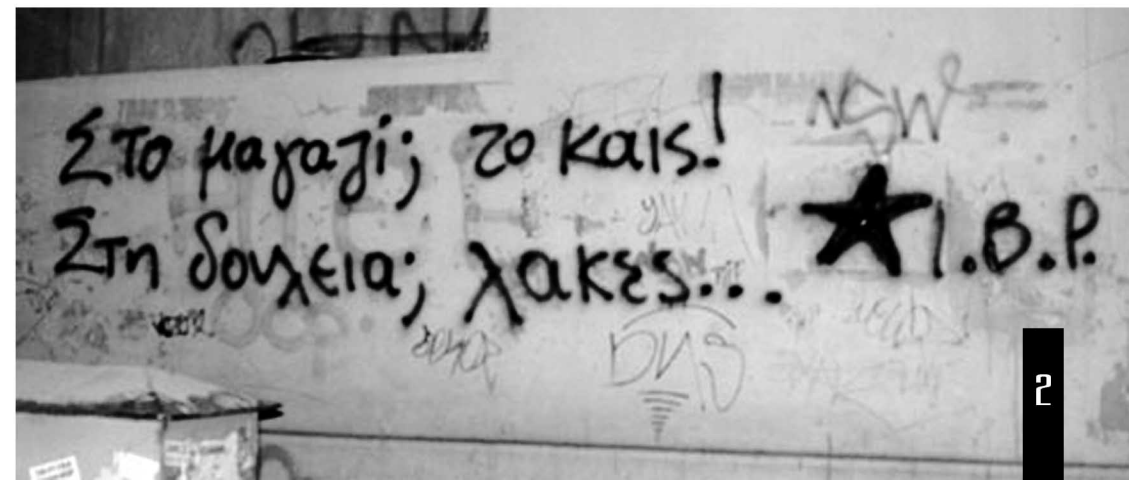 Στο μαγαζί; το καις!
Στη δουλεια; λακες...
★ I.B.P.
NSW
DNS
2